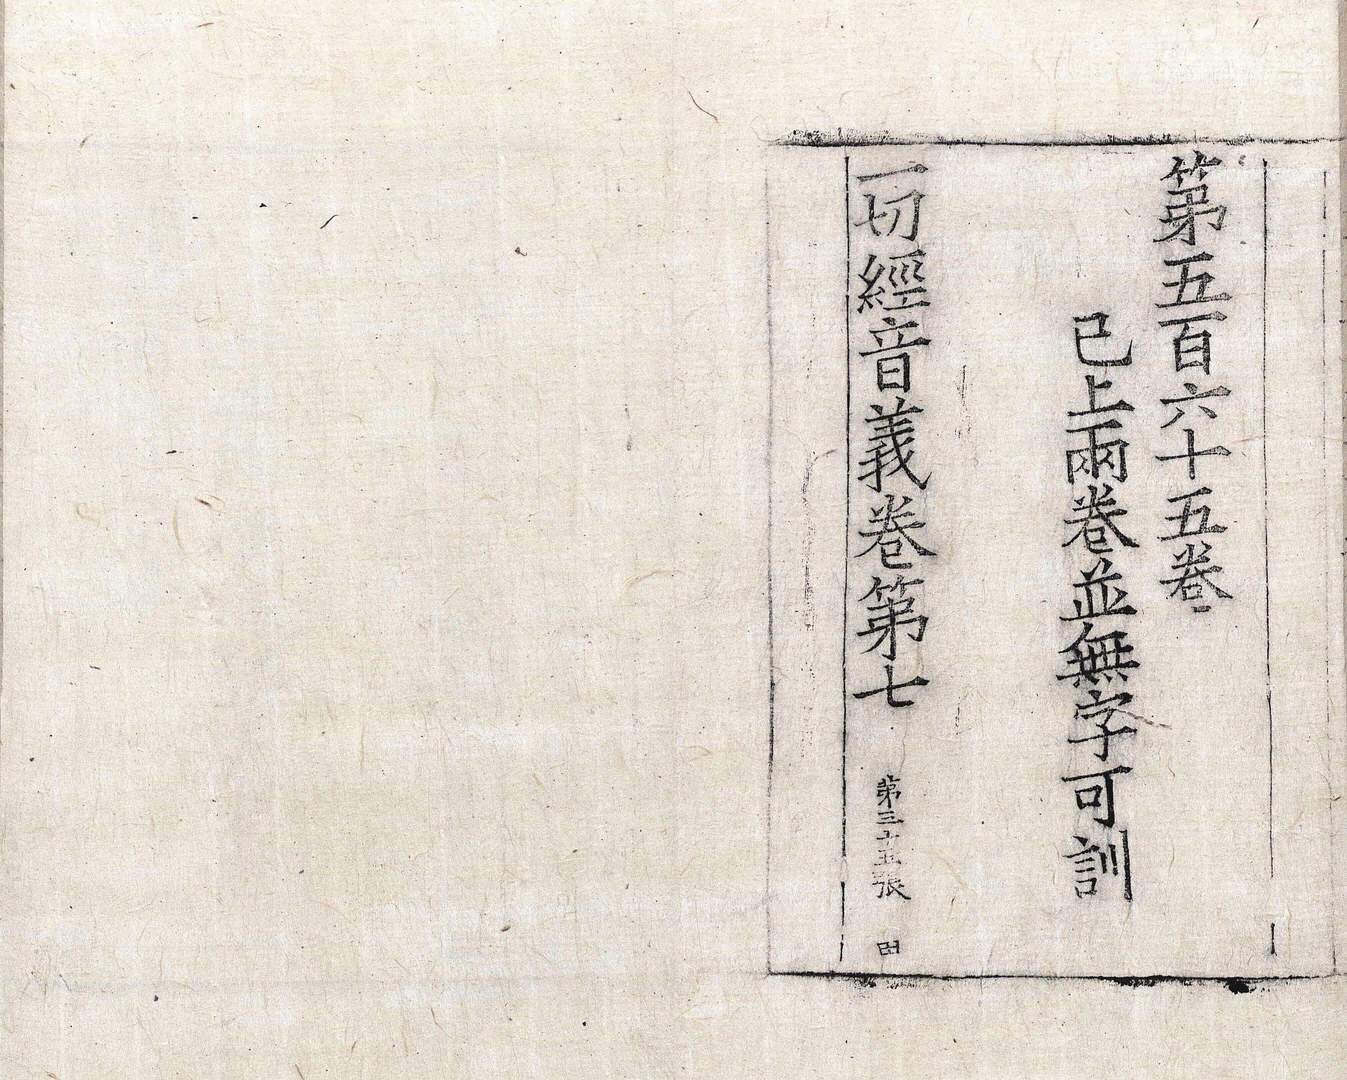 第五百六十五卷
已上兩卷並無字可訓
一切經音義卷第七
第三十五張